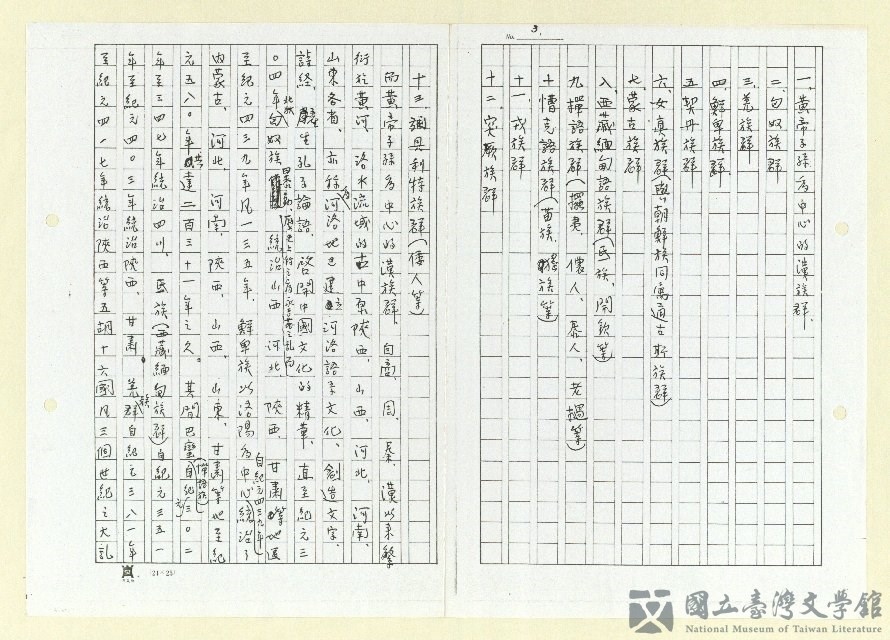 No. 3.
一、黃帝子孫為中心的漢族群.
二、匈奴族群
三、羌族群
四、鮮卑族群
五、契丹族群
六、女真族群與朝鮮族同寓通古斯族群)
七、蒙古族群
八、西藏緬甸語族群(氐族、閃欽等)
九、撣語族群(擺夷、儂人、泰人、老撾等)
十、懵克語族群(苗族、猺族等)
十一、戎族群
十二、突厥族群
十三、彌具利特族群(倭人等)
而黃帝子孫為中心的漢族群、自商、周、秦、漢以來繁
衍於黃河、洛水流域的古中原陝西、山西、河北、河南、
山東各省、亦稱為河洛地已建立河洛語系文化、創造文字、
詩經、產生孔子論語、啟開中國文化的精華、直至紀元三
〇四年北狄匈奴族暴動、歷史上稱之為永嘉之亂而統治山西、河北、陝西、甘肅等地區
至紀元四三九年凡一三五年、鮮卑族以洛陽為中心自紀元四三九年統治了
內蒙古、河北、河南、陝西、山西、山東、甘肅等地至紀
元五八〇年共達二百三十一年之久。其間巴蠻(撣語族)自紀元三〇二
年至三四七年統治四川、氐族(西藏緬甸族群)自紀元三五一
年至紀元四〇三年統治陝西、甘肅。羌族群自紀元三八一年
至紀元四一七年統治陝西等五胡十六國凡三個世紀之大亂
21×25
國立臺灣文學館
National Museum of Taiwan Literature